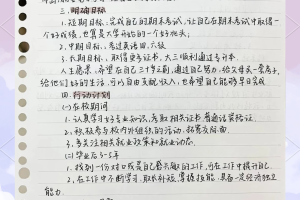 三、明确目标
1.短期目标：完成自己的期末考试，让自己在期末考试中取得一个好成绩，也算是大学开始的一个好兆头；
2.中期目标：考过英语四、六级
3.长期目标：取得更多证书，大三顺利通过专升本
人生愿景：希望在自己三十岁前，通过自己努力，给父母买一套房子，给他们好的生活，可以自由支配收入，也希望自己能够早日实现
四、行动计划
(一)在校期间
1.认真学习好专业知识，考取相关证书 普通话资格证
2.积极参与校内外组织的活动，拓展交际面
3.多关注相关就业政策和就业动态。
(二)毕业后3-5年
1.找到一份对口或是自己感兴趣的工作，可在工作中提升自己
2.在工作中不断学习，取长补短，掌握技能，具备一定经济独立能力。